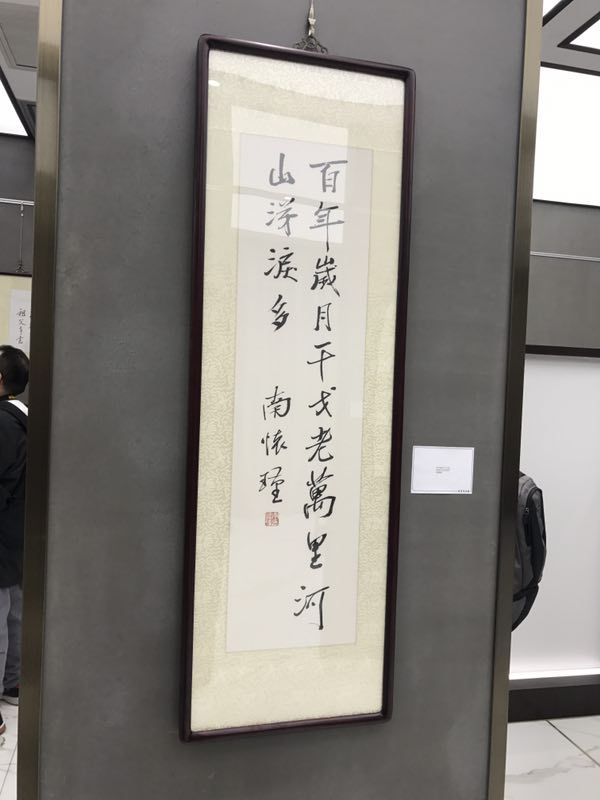 百年歲月干戈老萬里河
山涕淚多
南懷瑾